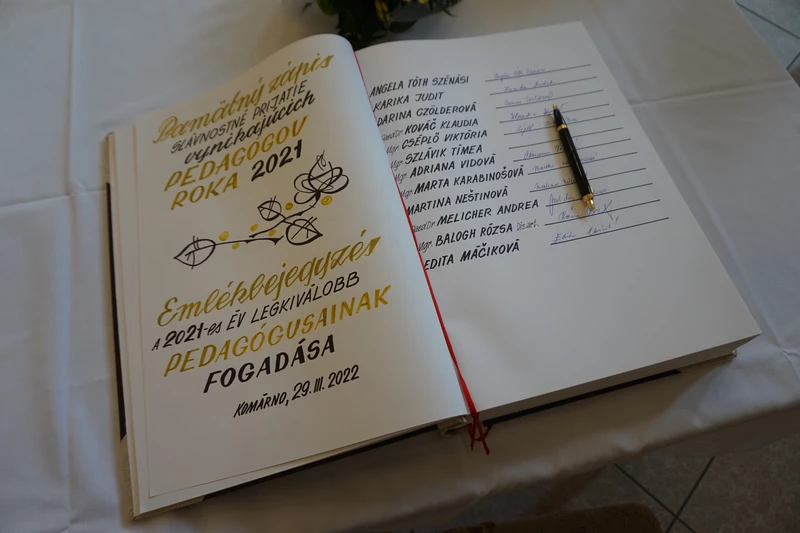 Pamätný zápis
SLÁVNOSTNÉ PRIJATIE
vynikajúcich
PEDAGÓGOV
ROKA 2021
Emlékbejegyzés
A 2021-es ÉV LEGKIVÁLÓBB
PEDAGÓGUSAINAK
FOGADÁSA
KOMÁRNO, 29. III. 2022
ANGELA TÓTH SZÉNÁSI
KARIKA JUDIT
DARINA GZÖLDEROVÁ
PaedDr. KOVÁČ KLAUDIA
Mgr. CSÉPLŐ VIKTÓRIA
Mgr. SZLÁVIK TÍMEA
Mgr. ADRIANA VIDOVÁ
Mgr. MARTA KARABINOŠOVÁ
MARTINA NEŠTINOVÁ
PaedDr. MELICHER ANDREA
Mgr. BALOGH RÓZSA Dis.art.
EDITA MÁČIKOVÁ